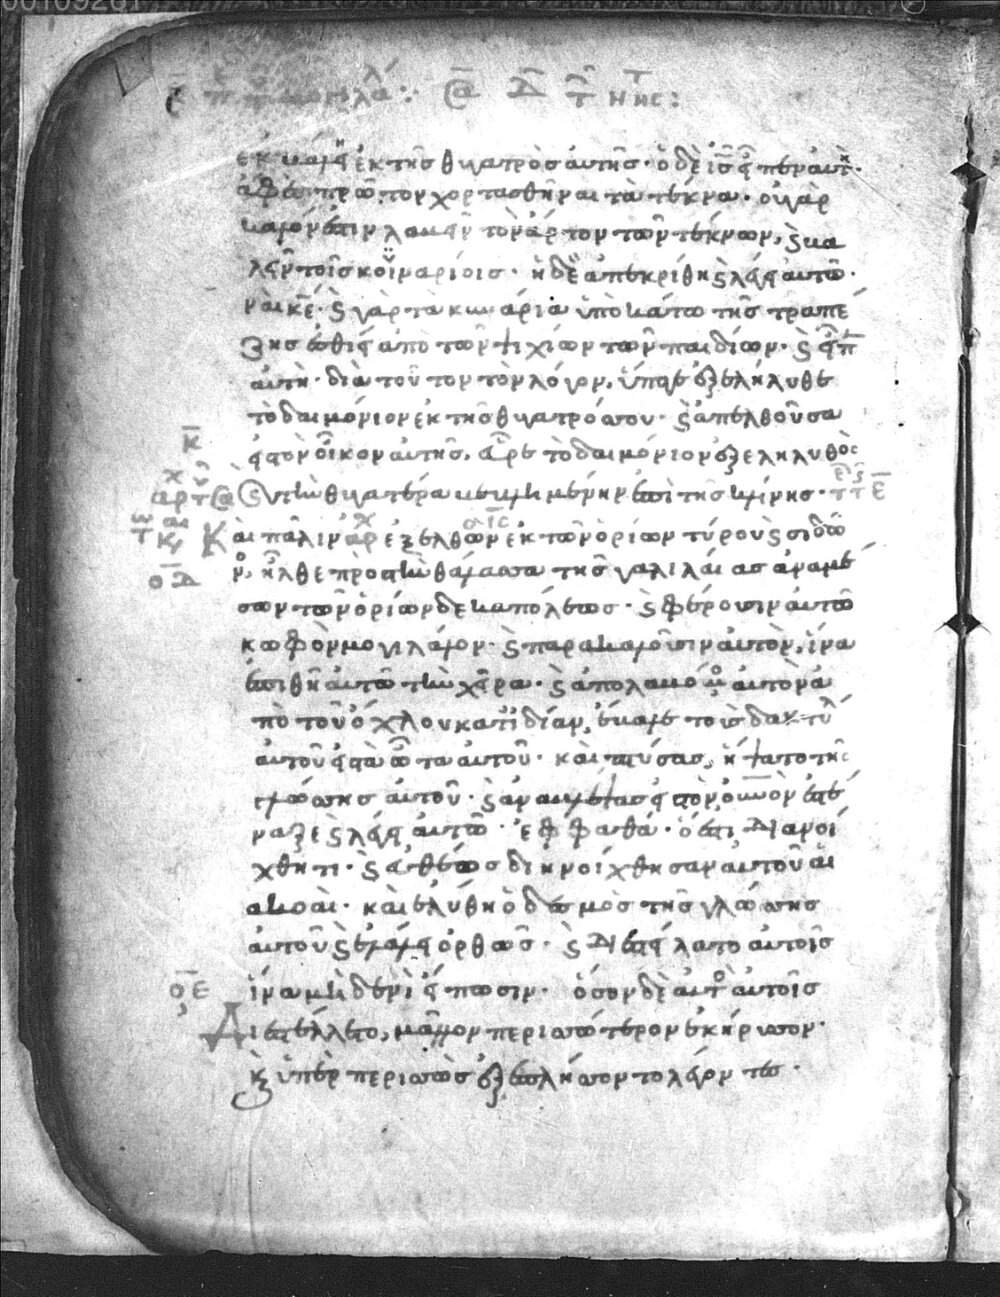 ἐκβάλῃ ἐκ τῆς θυγατρὸς αὐτῆς · ὁ δὲ ι̅ς̅ εἶπεν αὐτῇ ·
ἄφες πρῶτον χορτασθῆναι τὰ τέκνα · οὐ γὰρ
καλόν ἐστιν λαβεῖν τὸν ἄρτον τῶν τέκνων, καὶ βα
λεῖν τοῖς κοιναρίοις · ἡ δὲ ἀπεκρίθη καὶ λέγει αὐτῶ ·
ναὶ κ̅ε̅ · καὶ γὰρ τὰ κυνάρια ὑποκάτω τῆς τραπέ
ζης ἐσθίει ἀπὸ τῶν ψιχίων τῶν παιδίων · καὶ εἶπ
αὐτῆ · διὰ τοῦτον τὸν λόγον, ὕπαγε ἐξελήλυθε
τὸ δαιμόνιον ἐκ τῆς θυγατρός σου · καὶ ἀπελθοῦσα
εἰς τὸν οἶκον αὐτῆς, εὗρε τὸ δαιμόνιον ἐξεληλυθὸς
καὶ τὴν θυγατέρα βεβλημένην ἐπὶ τῆς κλίνης ·
Καὶ πάλιν ἐξελθὼν ἐκ τῶν ὁρίων τύρου καὶ σιδῶ
νος, ἦλθε πρὸς τὴν θάλασσα τῆς γαλιλαίας ἀναμέ
σων τῶν ὁρίων δεκαπόλεως · καὶ φέρουσιν αὐτῶ
κωφὸν μογιλάλον · καὶ παρακαλοῦσιν αὐτὸν, ἵνα
ἐπιθῆ αὐτῶ τὴν χεῖρα · καὶ ἀπολαβόμενος αὐτὸν ἀ
πὸ τοῦ ὄχλου κατ ἰδίαν, ἔβαλε τοὺς δακτύλ
αὐτοῦ εἰς τὰ ὦτα αὐτοῦ · καὶ πτύσας, ἥψατο τῆς
γλώσσης αὐτοῦ · καὶ ἀναβλέψας εἰς τὸν ου̅νον ἐστέ
ναξε καὶ λέγει αὐτῶ · ἐφφαθά · ὅ ἐστι διανοί
χθητι · καὶ εὐθέως διηνοίχθησαν αὐτοῦ αἱ
ἀκοαὶ · καὶ ἐλύθη ὁ δεσμὸς τῆς γλώσσης
αὐτοῦ καὶ ἐλάλει ὀρθῶς · καὶ διεστείλατο αὐτοῖς
ο̅ε̅ ἵνα μηδενὶ εἴπωσιν · ὅσον δὲ αὐτὸς αὐτοῖς
Διεστέλλετο, μᾶλλον περισσότερον ἐκήρυσσον ·
καὶ ὑπὲρ περισσῶς ἐξεπλήσσοντο λέγοντες ·